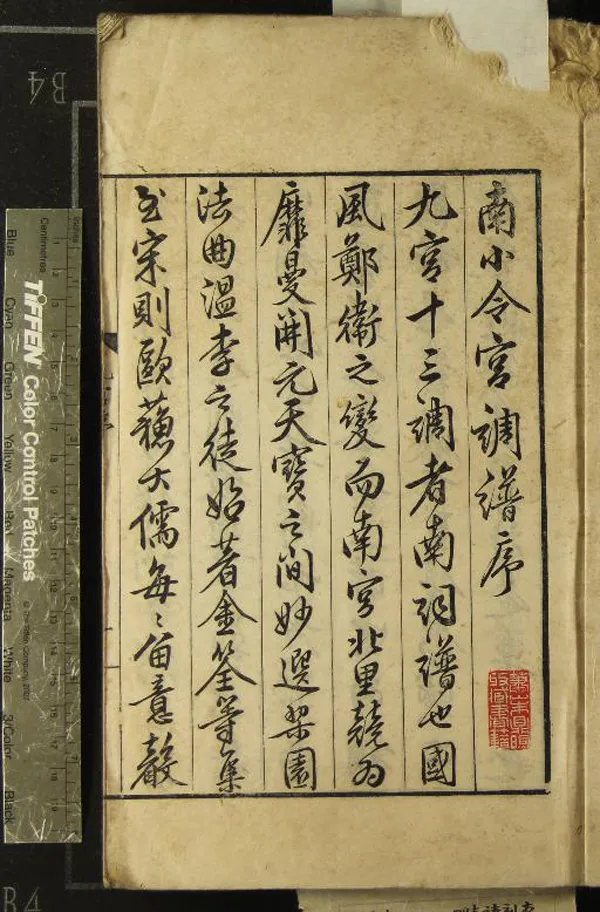 南小令宮調譜序
九宮十三調者南詞譜也國
風鄭衞之變而南宮北里競為
靡曼開元天寶之間妙選梨園
法曲溫李之徒始著金筌等集
至宋則歐蘇大儒每〻留意聲
B4
Inches
Centimetres
TIFFEN Color Control Patches
© The Tiffen Company, 2007
Blue
Cyan
Green
Yellow
Red
Magenta
White
3/Color
Black
B4